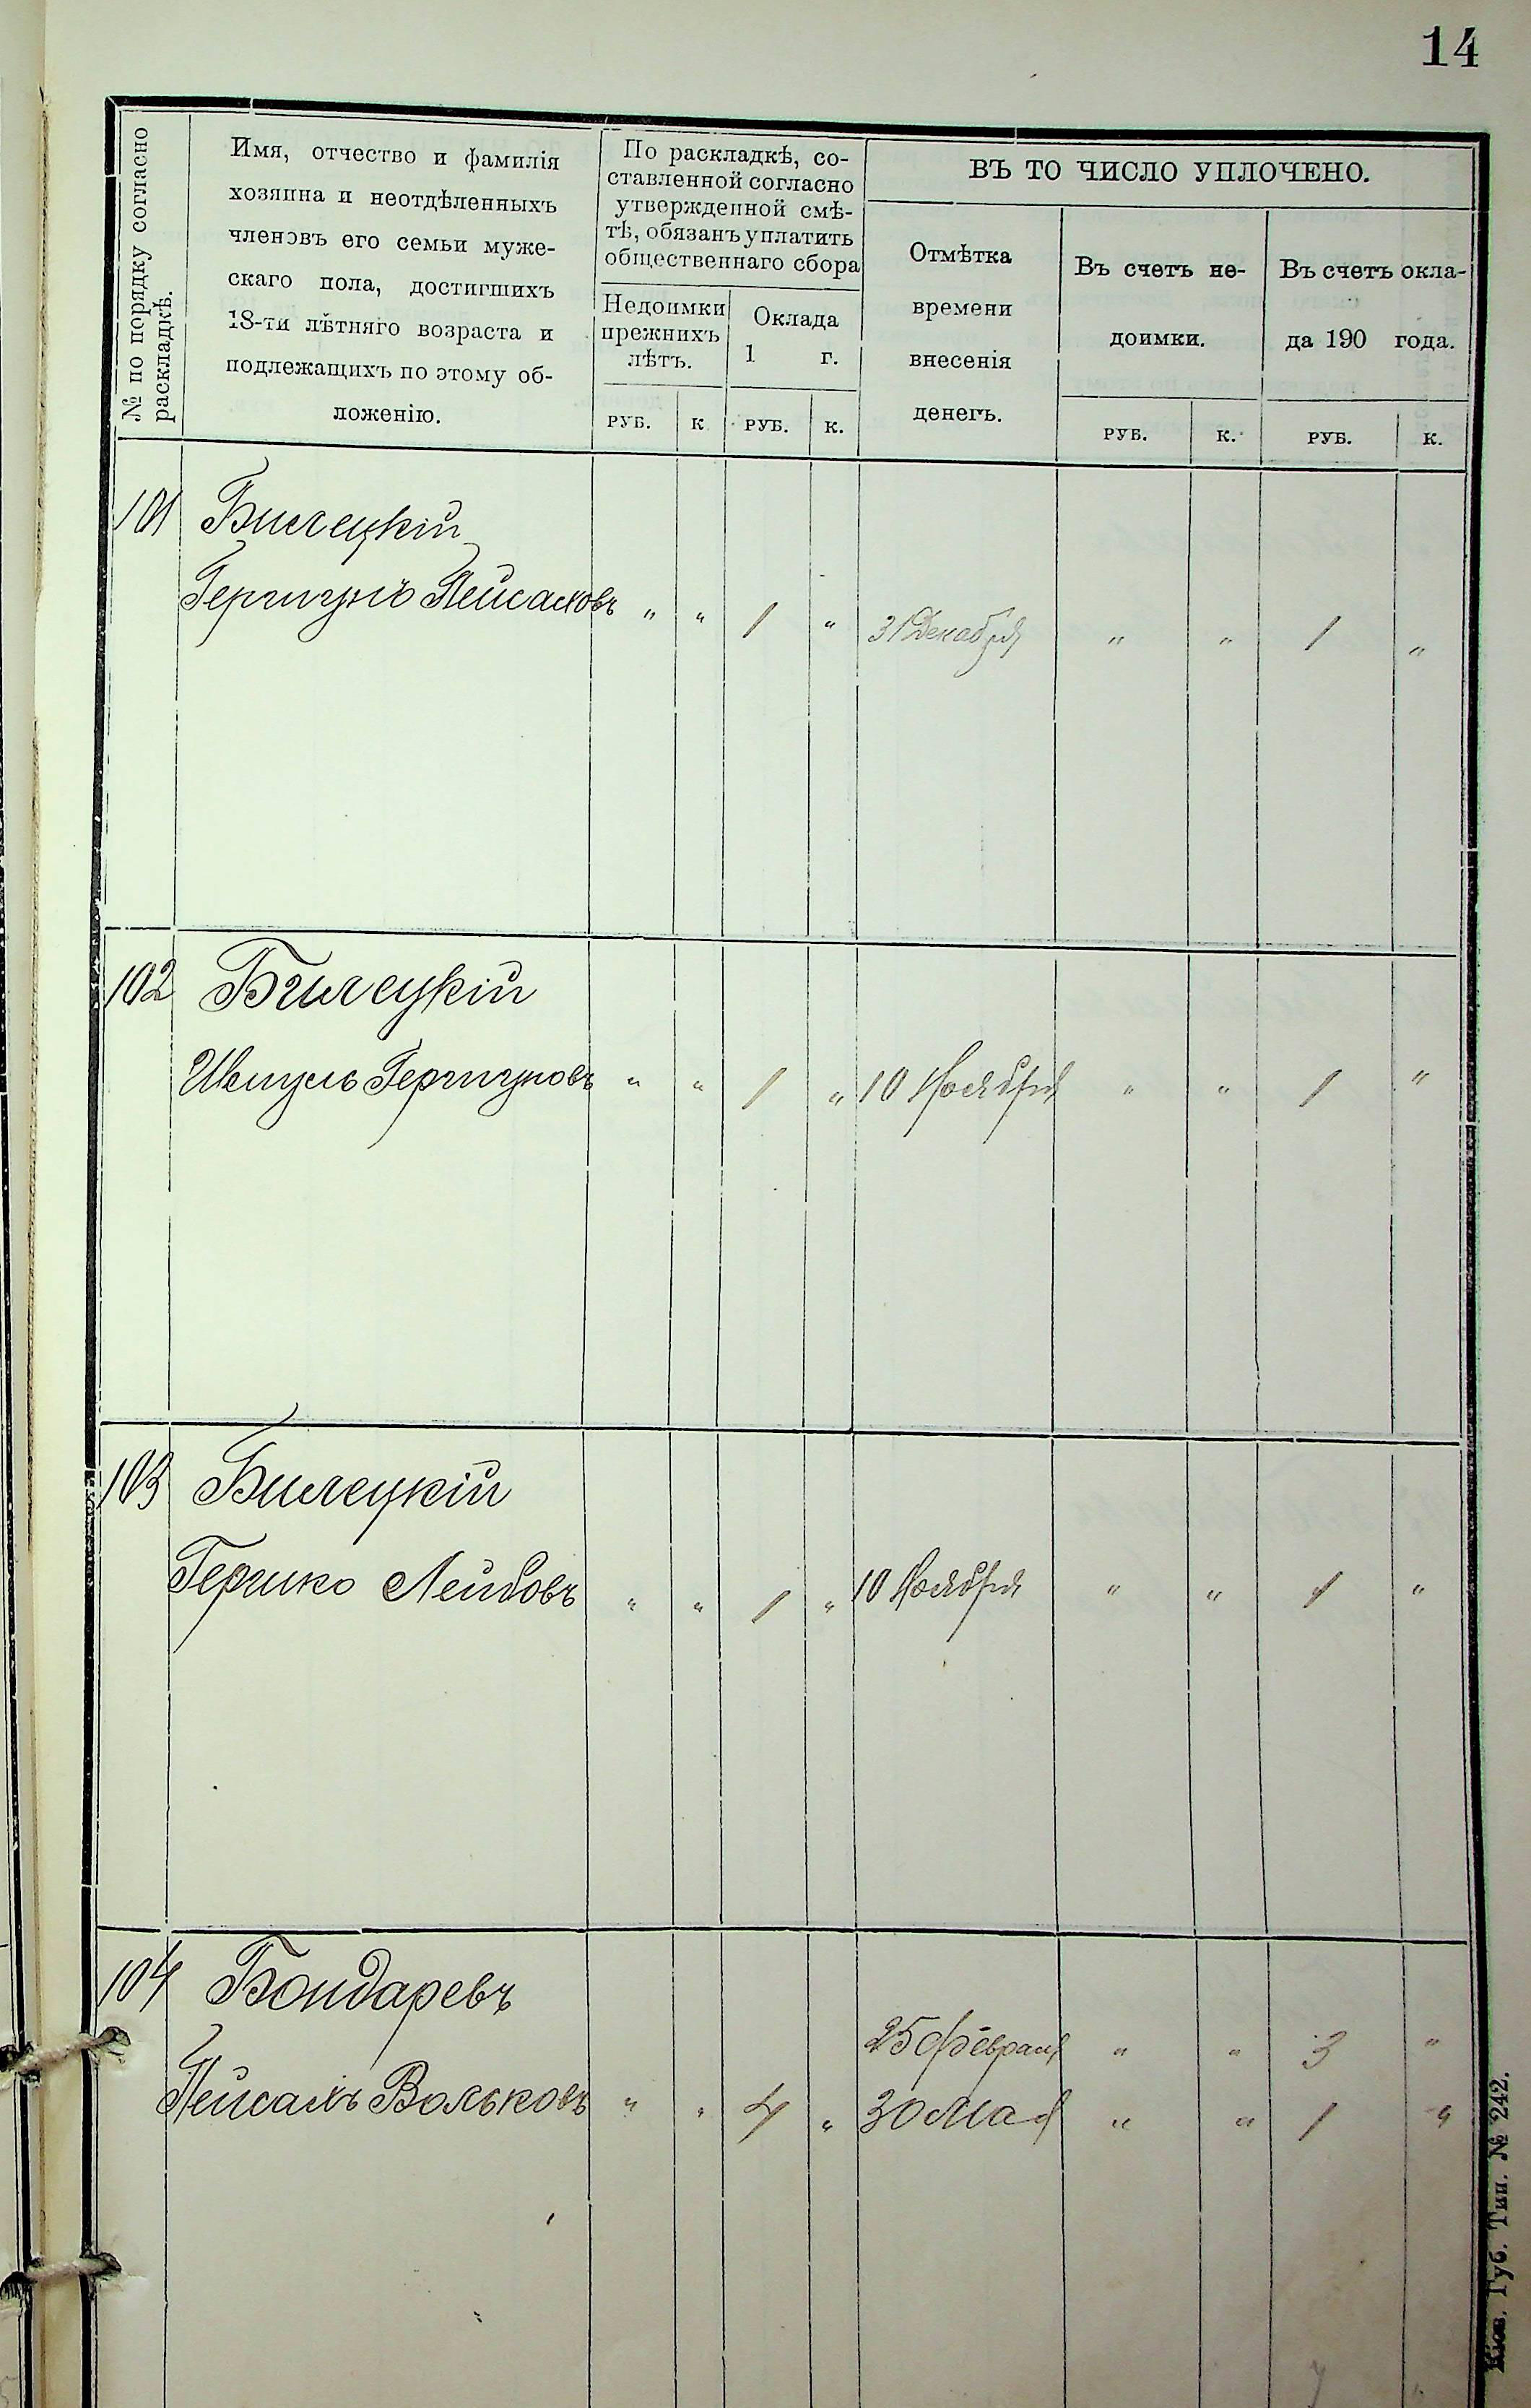 14
№ по порядку согласно
раскладкѣ.
Имя, отчество и фамилія
хозяина и неотдѣленныхъ
членовъ его семьи муже-
скаго пола, достигшихъ
18-ти лѣтняго возраста и
подлежащихъ по этому об-
ложенію.
По раскладкѣ, со-
ставленной согласно
утвержденной смѣ-
тѣ, обязанъ уплатить
общественнаго сбора
Недоимки
прежнихъ
лѣтъ.
Оклада
1 г.
РУБ. К РУБ. К.
ВЪ ТО ЧИСЛО УПЛОЧЕНО.
Отмѣтка
времени
внесенія
денегъ.
Въ счетъ не-
доимки.
Въ счетъ окла-
да 190 года.
РУБ. К. РУБ. К.
101 Билецкій
Гершунъ Пейсаховъ " " 1 " 31 Декабря " " 1 "
102 Билецкій
Шмуль Гершуновъ " " 1 " 10 Ноября " " 1 "
103 Билецкій
Гершко Лейбовъ " " 1 " 10 Ноября " " 1 "
104 Бондаревъ
25 Февраля " " 3 "
Пейсахъ Вольковъ " " 4 " 30 Мая " " 1 "
Кіев. Губ. Тип. № 242.